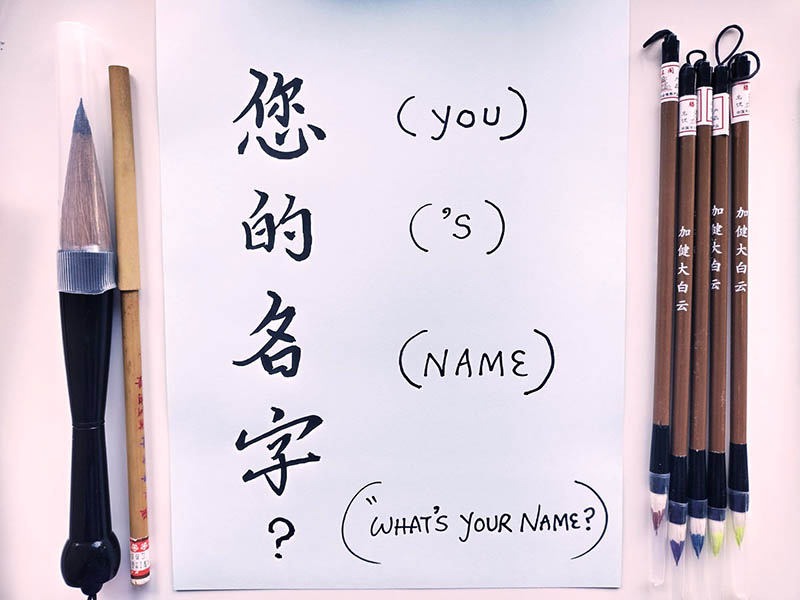 您 (YOU)
的 ('S)
名 (NAME)
字
? ("WHAT'S YOUR NAME?)
加健大白云
加健大白云
加健大白云